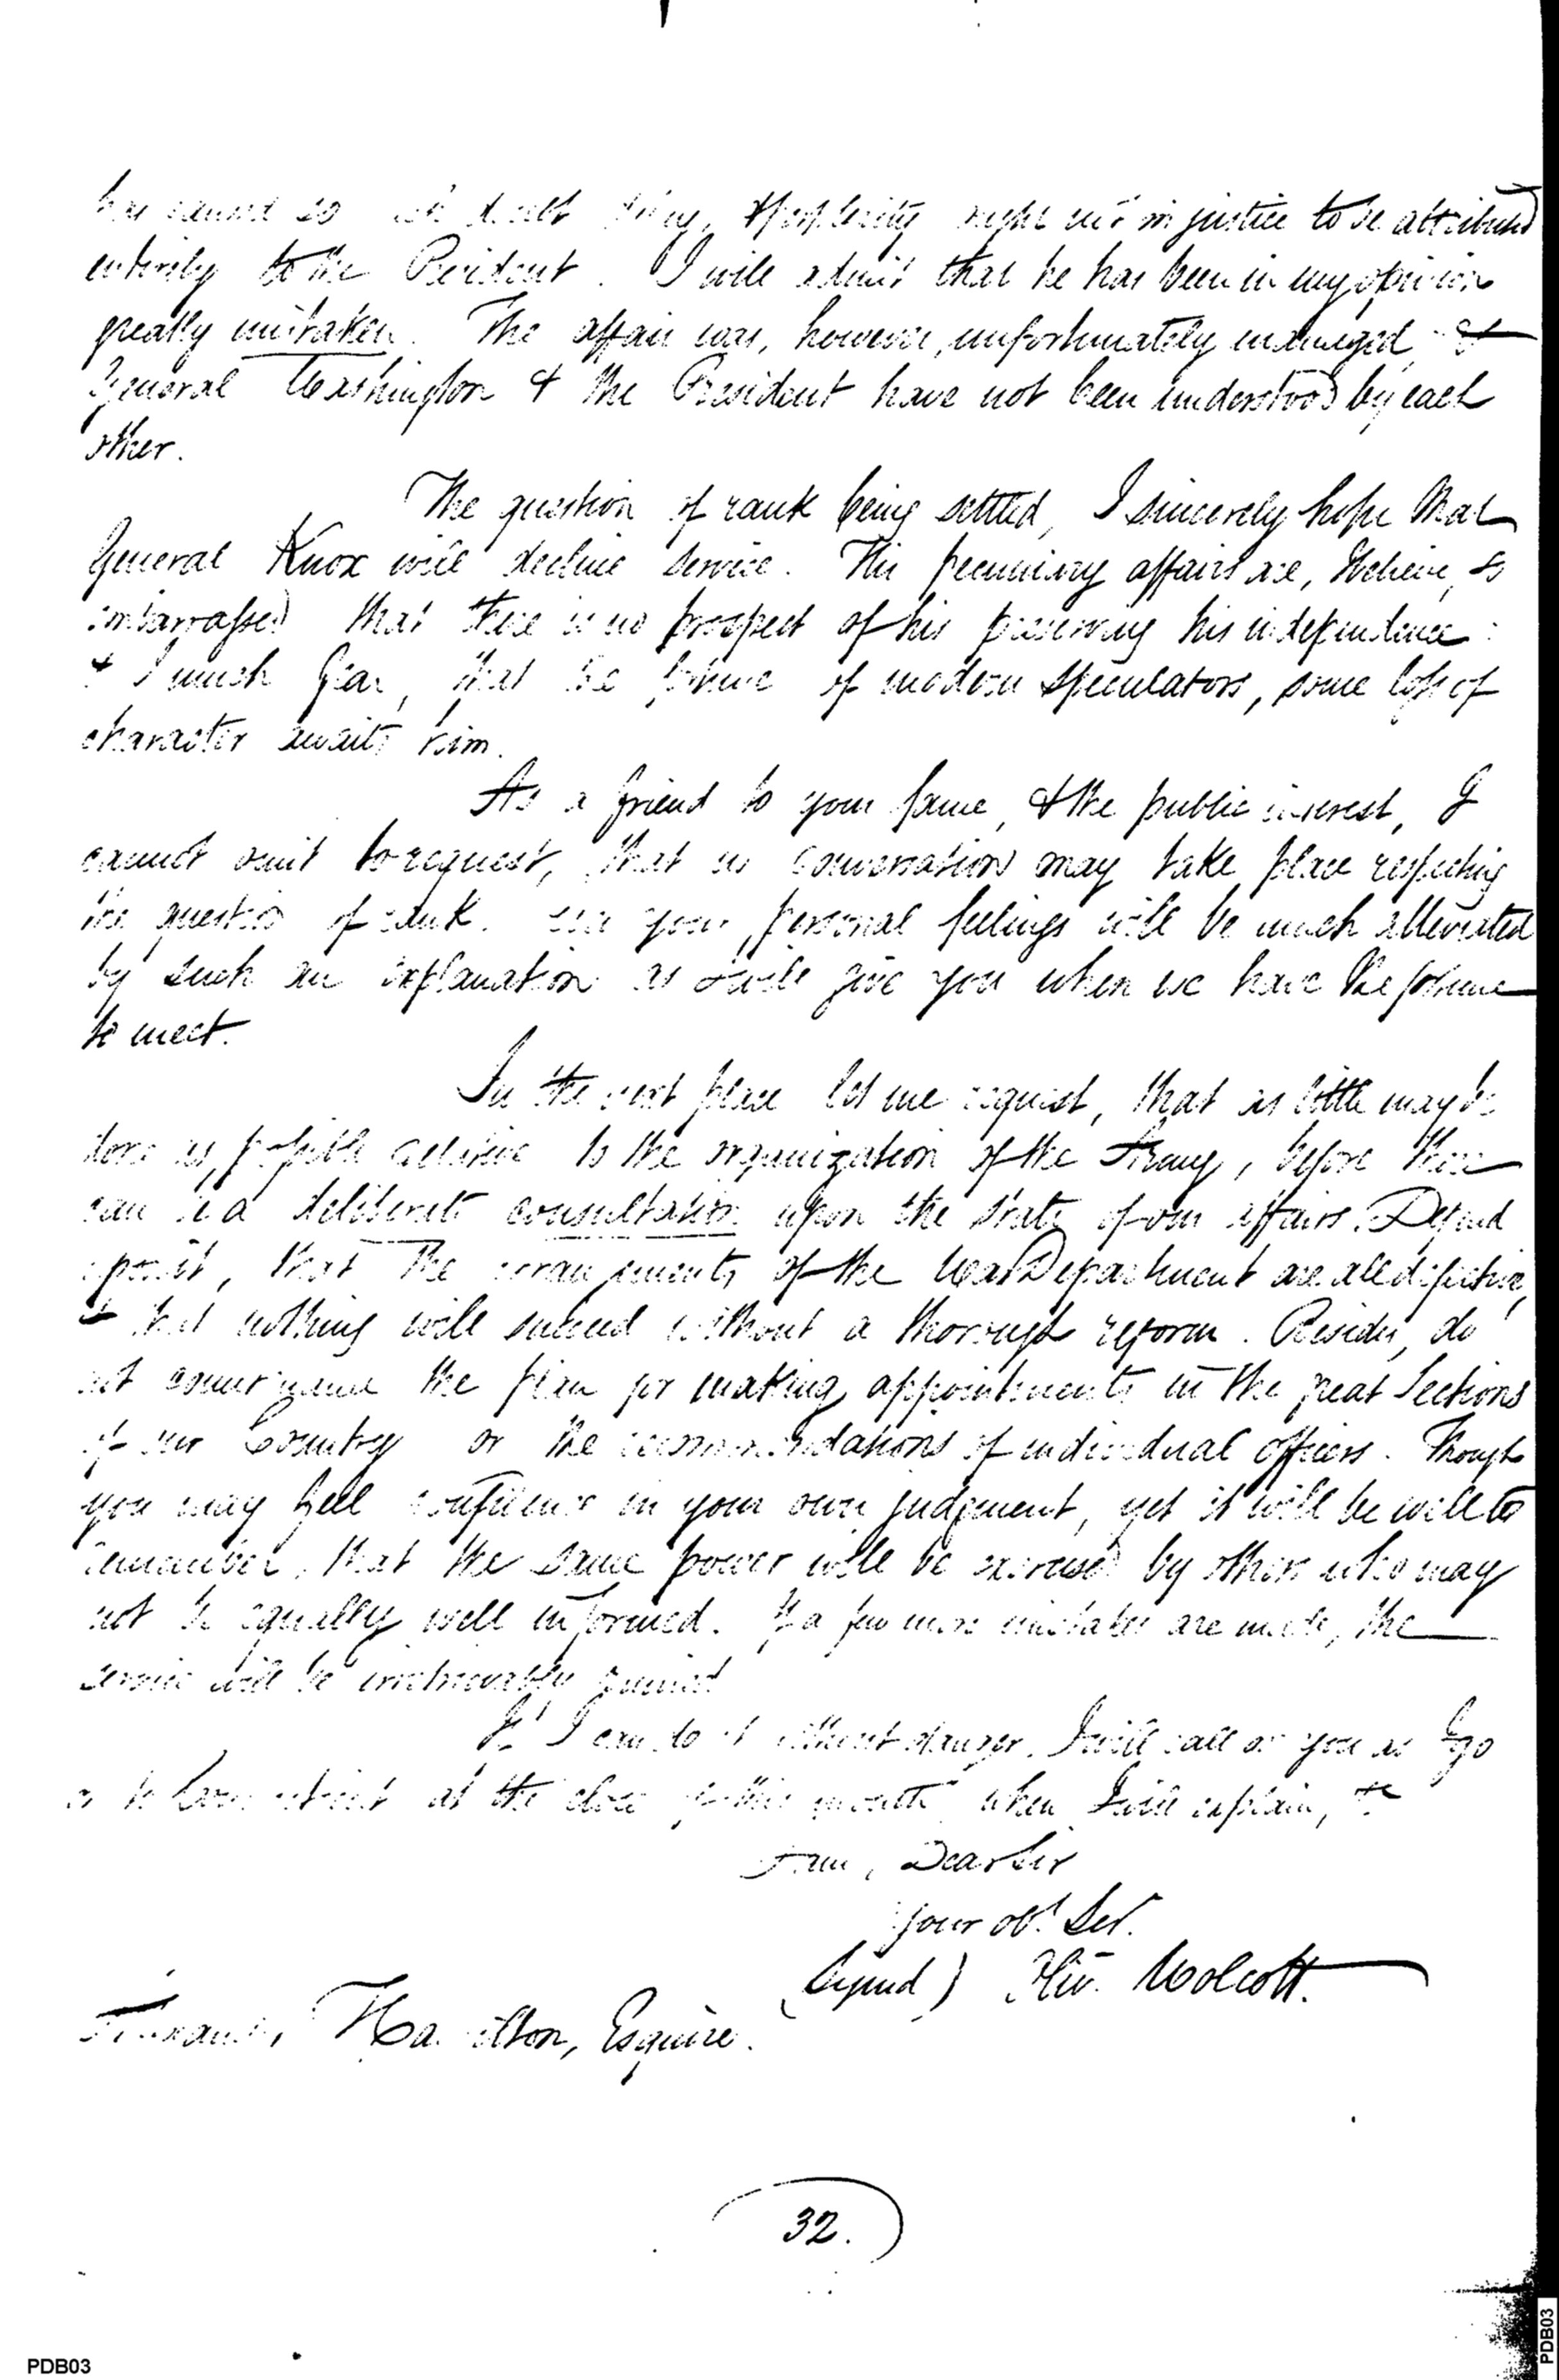 has caused so much difficulty, & perplexity ought not in justice to be attributed
entirely to the President. I will admit that he has been in my opinion
greatly mistaken. The affair was, however, unfortunately managed, &
General Washington & the President have not been understood by each
other.
The question of rank being settled, I sincerely hope that
General Knox will decline service. His pecuniary affairs are, I believe, so
embarrassed that there is no prospect of his preserving his independence:
& I much fear, that the fortune of modern speculators, some loss of
character awaits him.
As a friend to your fame, & the public interest, I
cannot omit to request, that no conversation may take place respecting
the question of rank. your personal feelings will be much alleviated
by such an explanation as I will give you when we have the fortune
to meet.
In the next place let me request, that as little may be
done as possible relative to the organization of the Army, before there
can be a deliberate consultation upon the state of our affairs. Depend
upon it, that the arrangements of the War Department are all defective,
& that nothing will succeed without a thorough reform. Besides, do
not countenance the plan for making appointments in the great Sections
of our Country or the recommendations of individual officers. Though
you may feel confidence in your own judgment, yet it will be well to
remember, that the same power will be exercised by others who may
not be equally well informed. If a few more mistakes are made, the
service will be irretrievably ruined.
If I can do it without danger, I will call on you as I go
to Connecticut at the close of this month when I will explain, &c
I am, Dear Sir
your obt. Sert.
(signed) Oliv. Wolcott.
Hamilton, Esquire.
32.
PDB03
PDB03